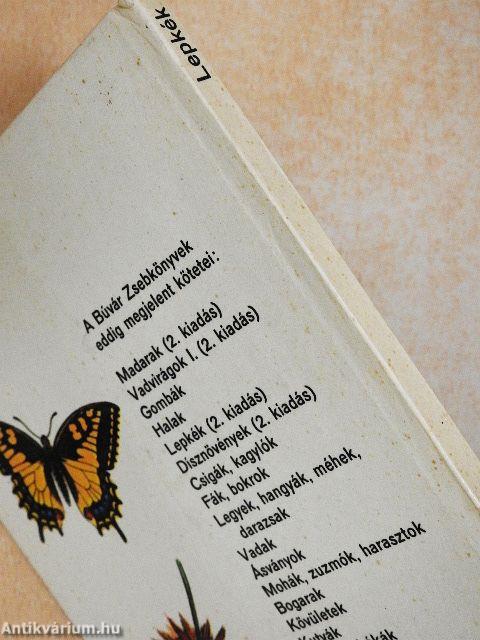 Lepkék
A Búvár Zsebkönyvek
eddig megjelent kötetei:
Madarak (2. kiadás)
Vadvirágok I. (2. kiadás)
Gombák
Halak
Lepkék (2. kiadás)
Dísznövények (2. kiadás)
Csigák, kagylók
Fák, bokrok
Legyek, hangyák, méhek,
darazsak
Vadak
Ásványok
Mohák, zuzmók, harasztok
Bogarak
Kövületek
Kutyák
Antikvárium.hu